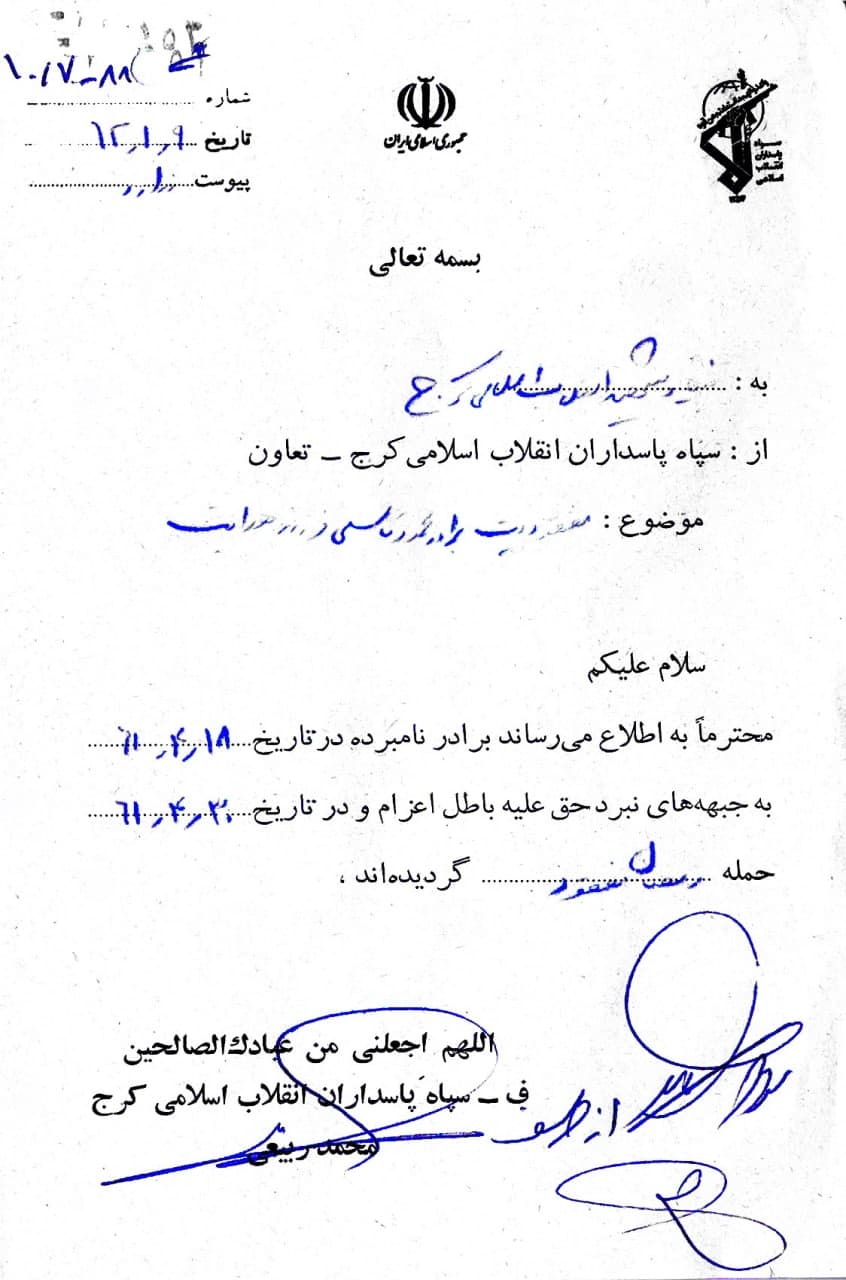 جمهوری اسلامی ایران
سپاه پاسداران انقلاب اسلامی
شماره
تاریخ ۶۲/۱/۹
پیوست ندارد
بسمه تعالی
به : کرج
از : سپاه پاسداران انقلاب اسلامی کرج – تعاون
موضوع : مفقودیت برادر محمد قاسمی فرزند
سلام علیکم
محترماً به اطلاع می‌رساند برادر نامبرده در تاریخ ۶۱/۴/۱۸
به جبهه‌های نبرد حق علیه باطل اعزام و در تاریخ ۶۱/۴/۳۰
حمله رمضان مفقود گردیده‌اند ،
اللهم اجعلنی من عبادك الصالحین
ف – سپاه پاسداران انقلاب اسلامی کرج
محمد ربیعی
از طرف